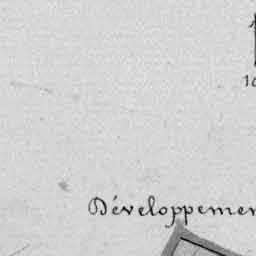 Développemen